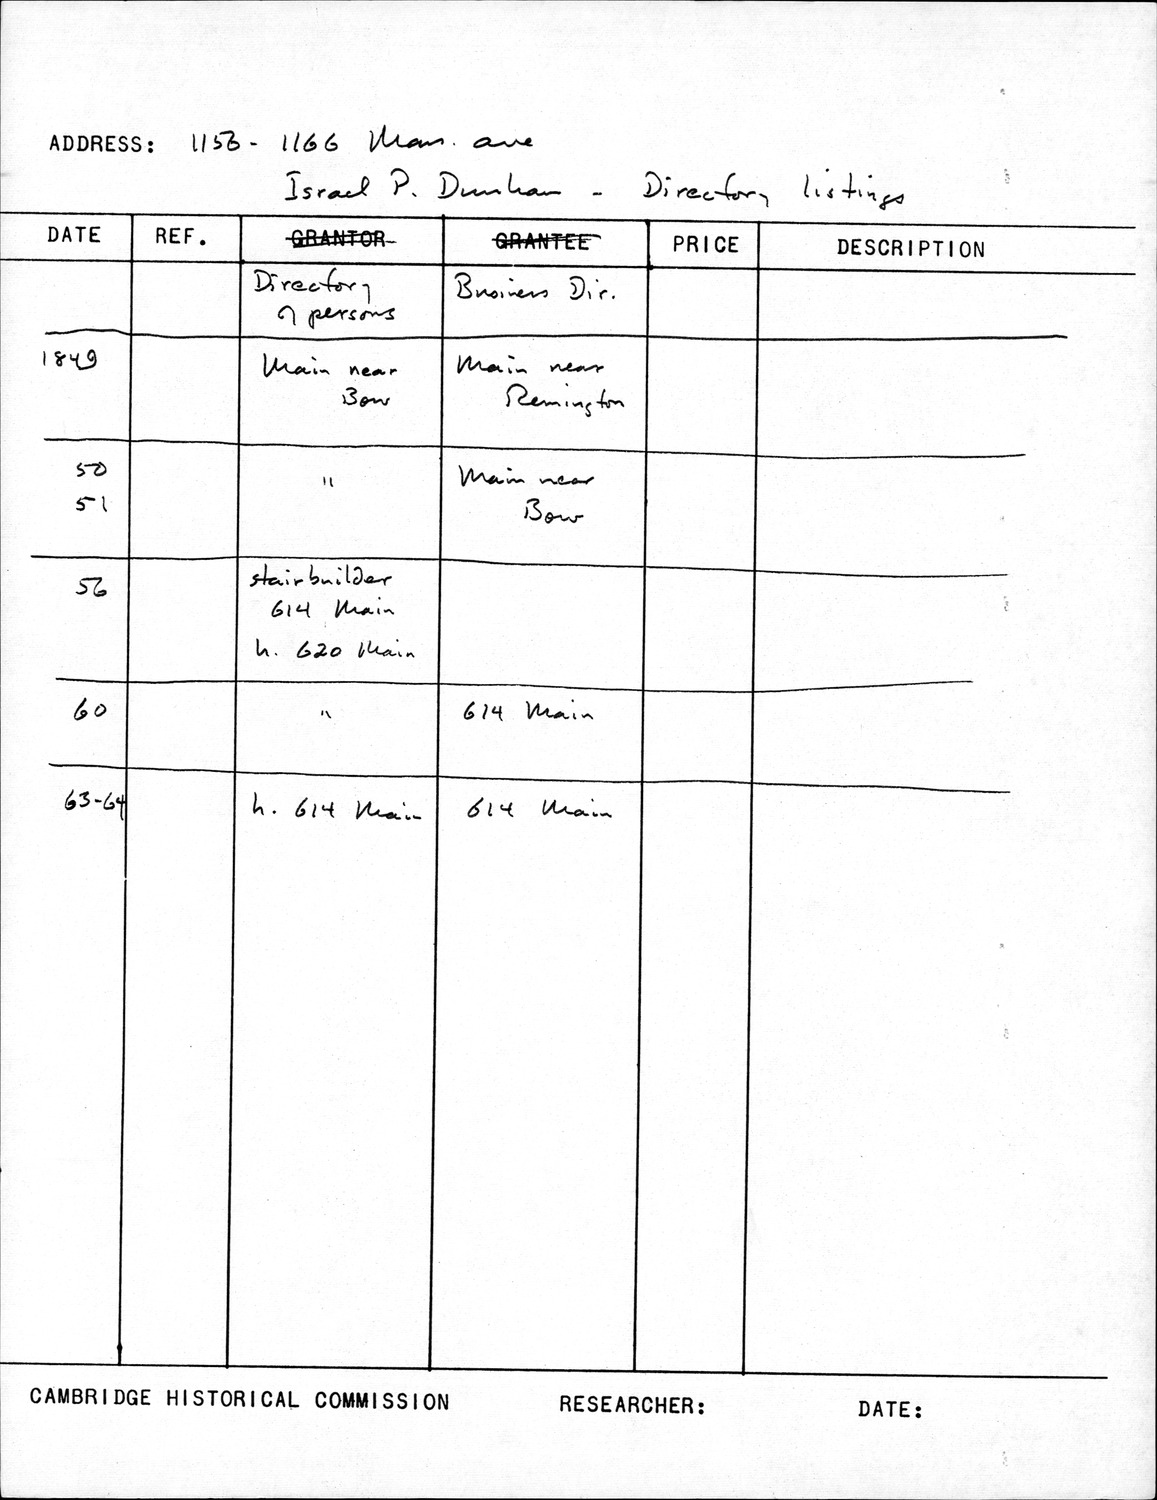 ADDRESS: 1156 - 1166 Mass. ave
Israel P. Dunham - Directory listings
DATE REF. GRANTOR GRANTEE PRICE DESCRIPTION
Directory Business Dir.
of persons
1849 Main near Main near
Bow Remington
50 " Main near
51 Bow
56 stairbuilder
614 Main
h. 620 Main
60 " 614 Main
63-64 h. 614 Main 614 Main
CAMBRIDGE HISTORICAL COMMISSION RESEARCHER: DATE: